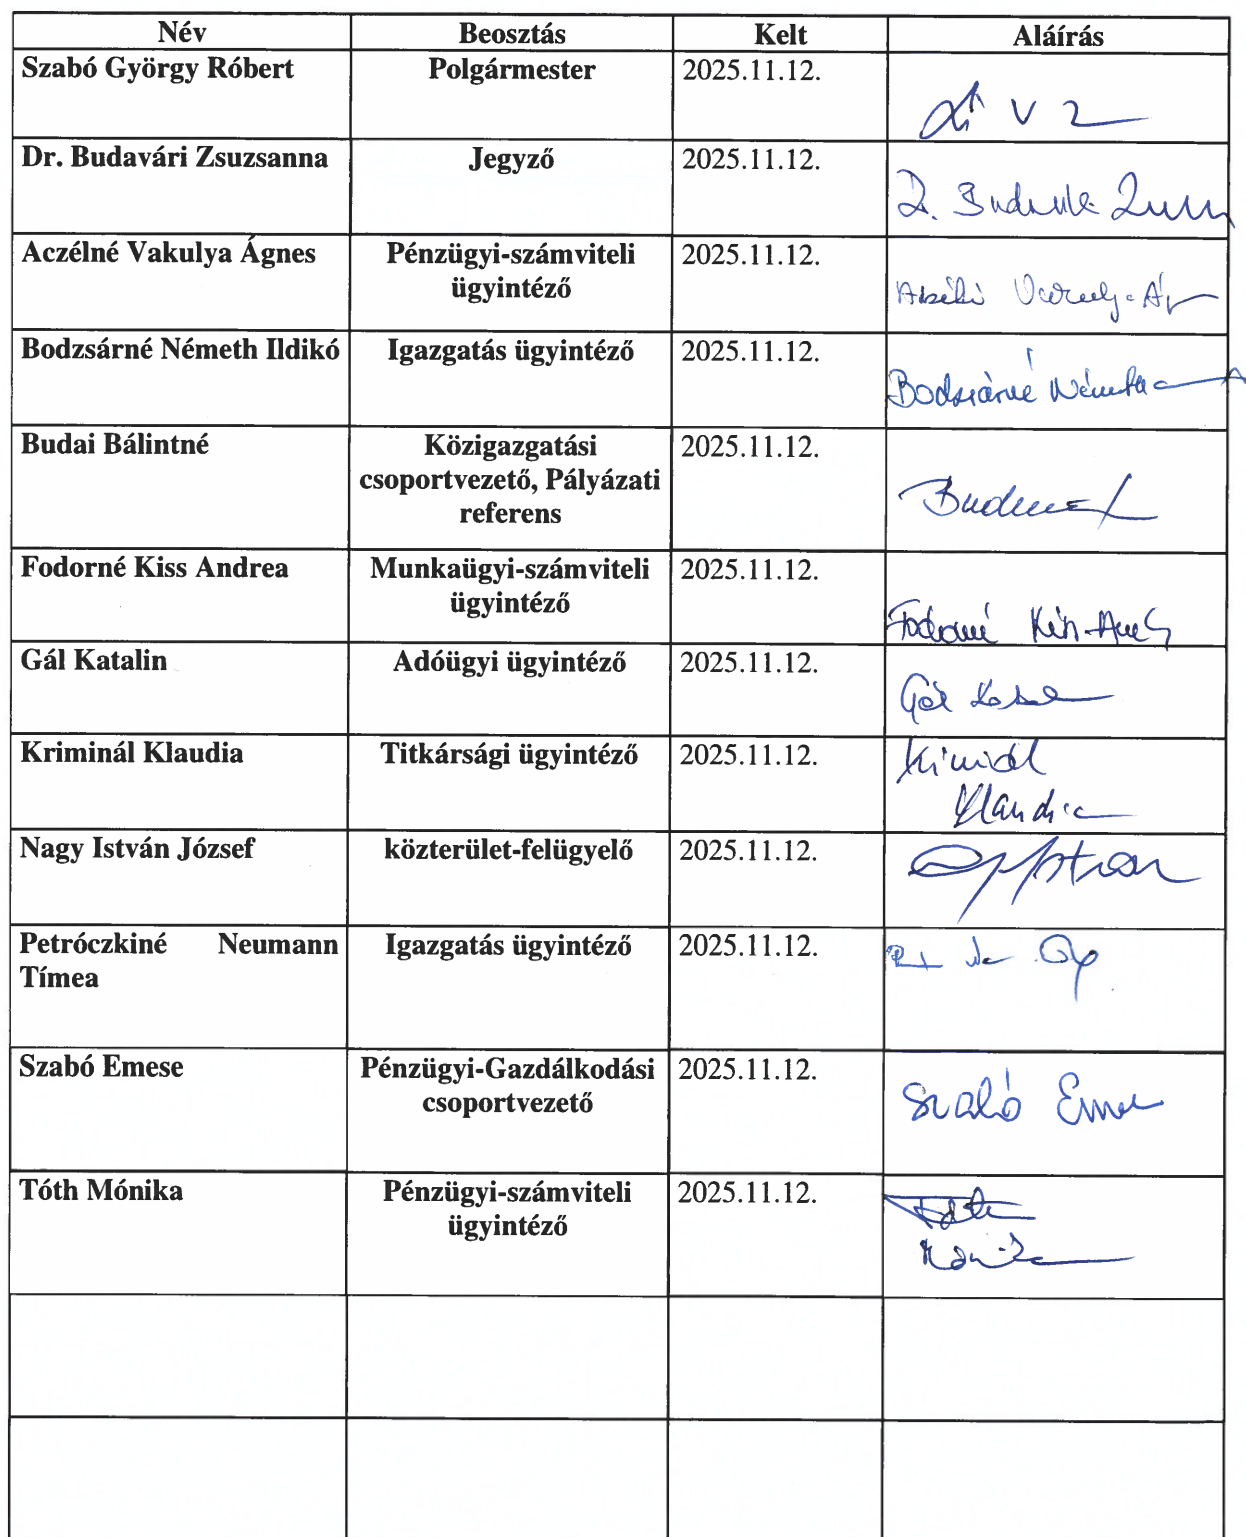 Név Beosztás Kelt Aláírás
Szabó György Róbert Polgármester 2025.11.12.
Dr. Budavári Zsuzsanna Jegyző 2025.11.12.
Aczélné Vakulya Ágnes Pénzügyi-számviteli 2025.11.12.
ügyintéző
Bodzsárné Németh Ildikó Igazgatás ügyintéző 2025.11.12.
Bodzsárné Németh
Budai Bálintné Közigazgatási 2025.11.12.
csoportvezető, Pályázati
referens
Fodorné Kiss Andrea Munkaügyi-számviteli 2025.11.12.
ügyintéző
Fodorné Kiss
Gál Katalin Adóügyi ügyintéző 2025.11.12.
Gál
Kriminál Klaudia Titkársági ügyintéző 2025.11.12.
Kriminál
Klaudia
Nagy István József közterület-felügyelő 2025.11.12.
Petróczkiné Neumann Igazgatás ügyintéző 2025.11.12.
Tímea
Szabó Emese Pénzügyi-Gazdálkodási 2025.11.12.
csoportvezető
Szabó Emese
Tóth Mónika Pénzügyi-számviteli 2025.11.12.
ügyintéző
Tóth
Mónika